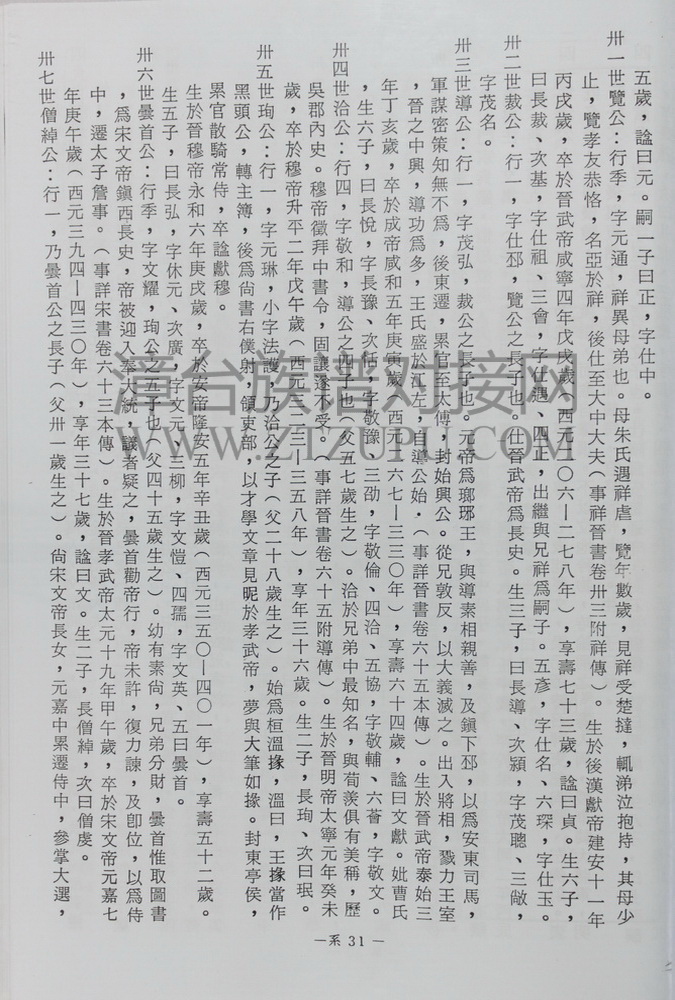 五歲，諡曰元。嗣一子曰正，字仕中。
卅一世覽公：行季，字元通，祥異母弟也。母朱氏遇祥虐，覽年數歲，見祥受楚撻，輒涕泣抱持，其母少
止，覽孝友恭恪，名亞於祥，後仕至大中大夫（事祥晉書卷卅三附祥傳）。生於後漢獻帝建安十一年
丙戌歲，卒於晉武帝咸寧四年戊戌歲（西元二〇六—二七八年），享壽七十三歲，諡曰貞。生六子，
曰長裁、次基，字仕祖、三會，字仕遇、四正，出繼與兄祥爲嗣子。五彥，字仕名、六琛，字仕玉。
卅二世裁公：行一，字仕邳，覽公之長子也。仕晉武帝爲長史。生三子，曰長導、次潁，字茂聰、三敞，
字茂名。
卅三世導公：行一，字茂弘，裁公之長子也。元帝爲瑯琊王，與導素相親善，及鎭下邳，以爲安東司馬，
軍謀密策知無不爲，後東遷，累官至太傅，封始興公。從兄敦反，以大義滅之。出入將相，戮力王室
，晉之中興，導功爲多，王氏盛於江左，自導公始．（事詳晉書卷六十五本傳）。生於晉武帝泰始三
年丁亥歲，卒於成帝咸和五年庚寅歲（西元二六七—三三〇年），享壽六十四歲，諡曰文獻。妣曹氏
，生六子，曰長悅，字長豫、次恬，字敬豫、三劭，字敬倫、四洽、五協，字敬輔、六薈，字敬文。
卅四世洽公：行四，字敬和，導公之四子也（父五七歲生之）。洽於兄弟中最知名，與荀羨俱有美稱，歷
吳郡內史。穆帝徵拜中書令，固讓遂不受。（事詳晉書卷六十五附導傳）。生於晉明帝太寧元年癸未
歲，卒於穆帝升平二年戊午歲（西元三二三—三五八年），享年三十六歲。生二子，長珣、次曰珉。
卅五世珣公：行一，字元琳，小字法護，乃洽公之子（父二十八歲生之）。始爲桓溫掾，溫曰，王掾當作
黑頭公，轉主簿，後爲尙書右僕射，領吏部，以才學文章見昵於孝武帝，夢與大筆如掾。封東亭侯，
累官散騎常侍，卒諡獻穆。
生於晉穆帝永和六年庚戌歲，卒於安帝隆安五年辛丑歲（西元三五〇—四〇一年），享壽五十二歲。
生五子，曰長弘，字休元、次廣，字文元、三柳，字文愷、四孺，字文英、五曰曇首。
卅六世曇首公：行季，字文耀，珣公之五子也（父四十五歲生之）。幼有素尙，兄弟分財，曇首惟取圖書
，爲宋文帝鎭西長史，帝被迎入奉大統，議者疑之，曇首勸帝行，帝未許，復力諫，及卽位，以爲侍
中，遷太子詹事。（事詳宋書卷六十三本傳）。生於晉孝武帝太元十九年甲午歲，卒於宋文帝元嘉七
年庚午歲（西元三九四—四三〇年），享年三十七歲，諡曰文。生二子，長僧綽，次曰僧虔。
卅七世僧綽公：行一，乃曇首公之長子（父卅一歲生之）。尙宋文帝長女，元嘉中累遷侍中，參掌大選，
—系 31—
漳台族谱对接网
WWW.ZTZUPU.COM